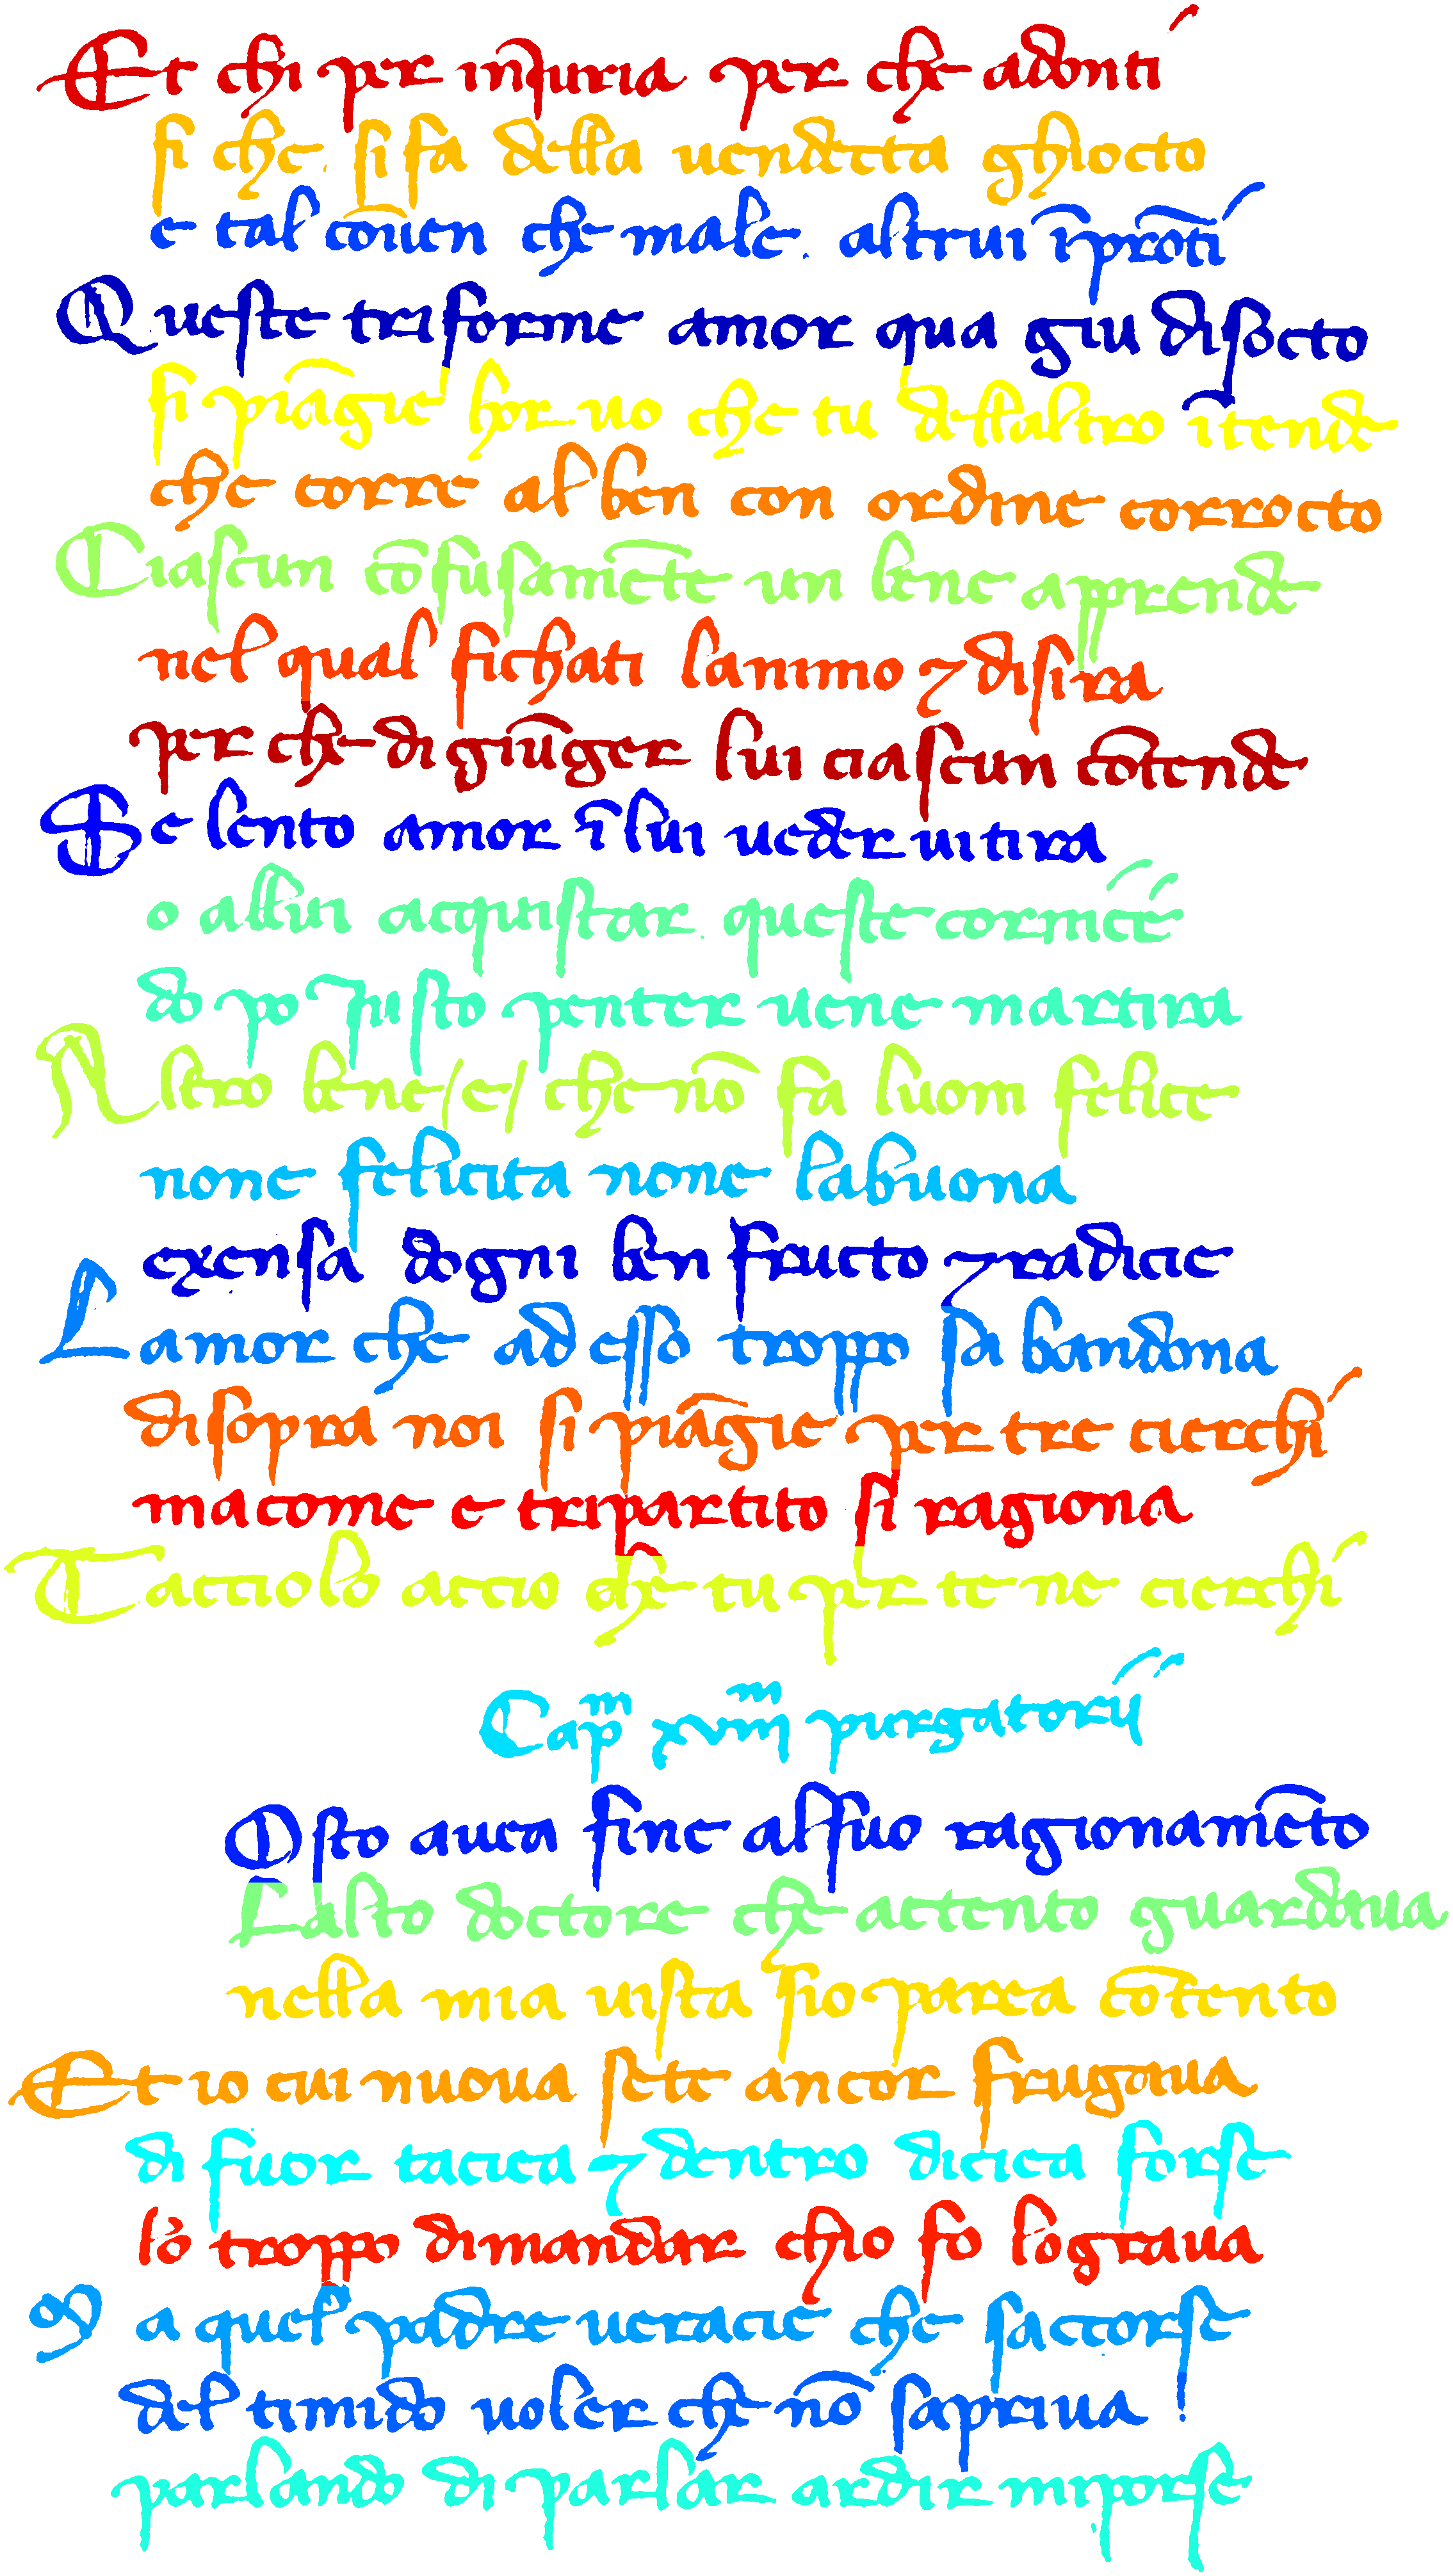 Et chi per inJuria per che adonti
si che. si fa della uendecta ghiocto
e tal cōuen che male. altrui īprōti
Queste triforme amor qua giu disocto
si piāgie hor uo che tu dellaltro ītende
che corre al ben con ordine corrocto
Ciascun cōfusamēte un bene apprende
nel qual fichati lanimo ⁊ disira
per che di giūger lui ciascun cōtende
Se lento amor ī lui ueder ui tira
o allui acquistar. queste cornice
do po Justo penter uene martira
Altro bene/e/ che nō fa luom felice
none felicita none la buona
exensa dogni ben fructo ⁊ radicie
Lamor che ad esso troppo sa bandona
disopra noi si piāgie per tre cierchi
macome e tripartito si ragiona
Tacciolo accio che tu per te ne cierchi
Capm xviiim purgatorij
Osto auea fine al suo ragionamēto
Lalto doctore che actento guardaua
nella mia uista sio parea cōtento
Et io cui nuoua sete ancor frugaua
di fuor taciea ⁊ dentro diciea forse
lo troppo dimandar chio fo lograua
Ma quel padre ueracie che saccorse
del timido uoler che nō sapriua
parlando di parlar ardir miporse